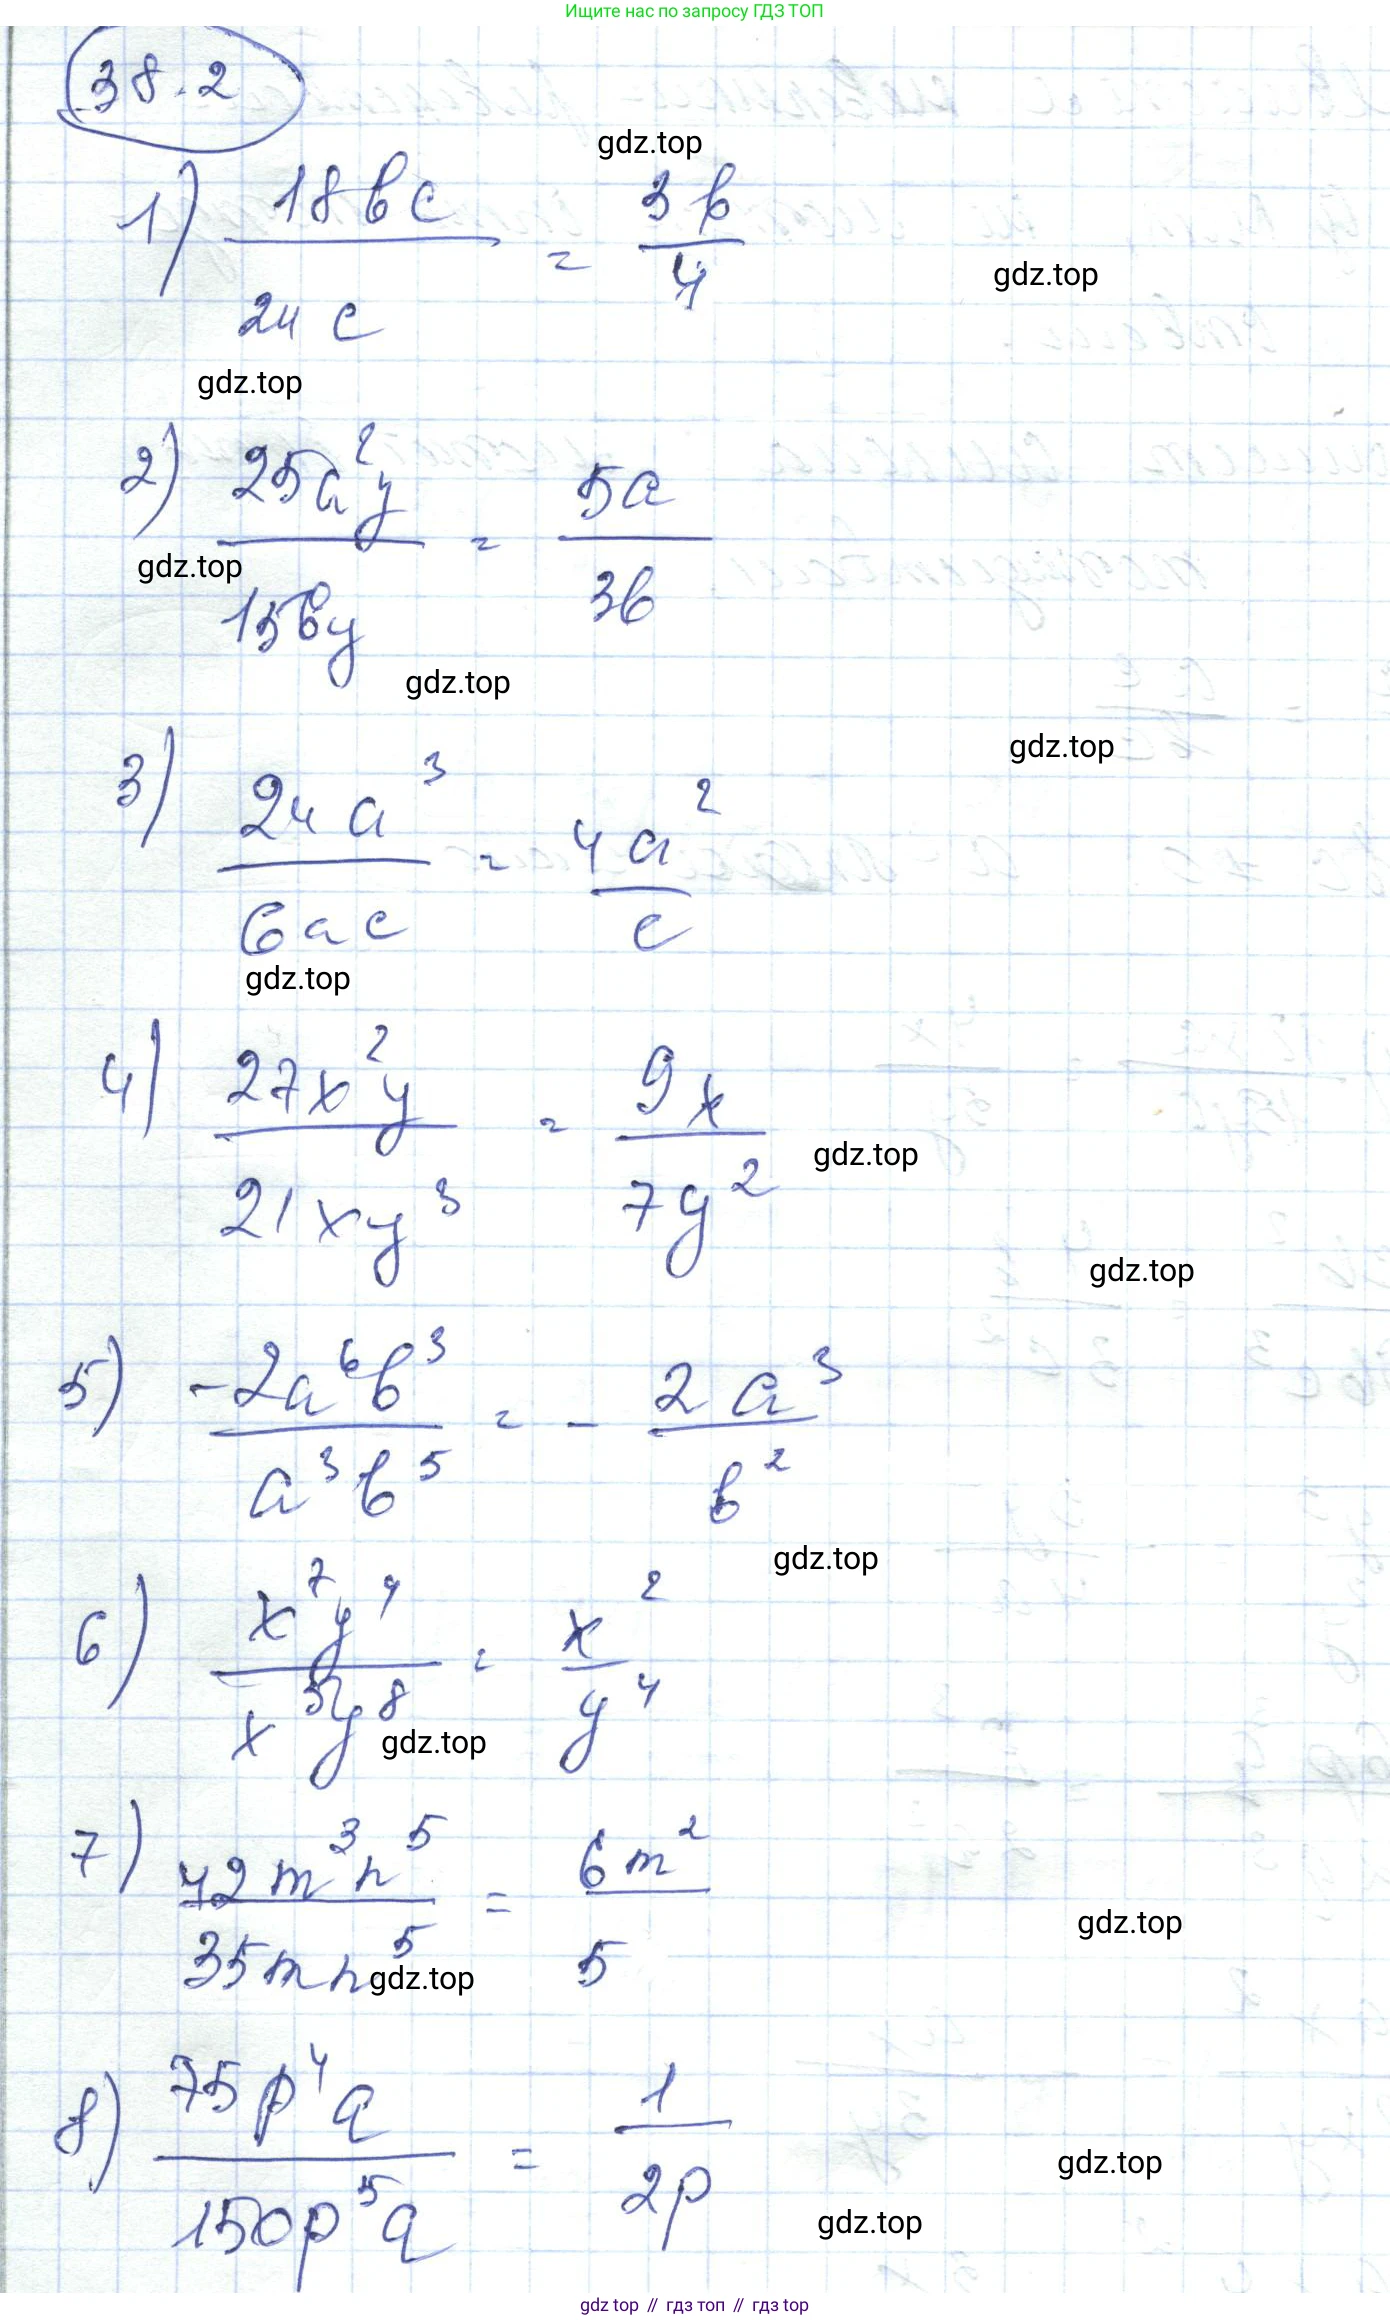 Ищите нас по запросу ГДЗ ТОП
38.2
gdz.top
1) 18bc/24c = 3b/4
gdz.top
gdz.top
2) 25a²y/15by = 5a/3b
gdz.top
gdz.top
gdz.top
3) 24a³/6ac = 4a²/c
gdz.top
4) 27x²y/21xy³ = 9x/7y²
gdz.top
gdz.top
5) -2a⁶b³/a³b⁵ = - 2a³/b²
gdz.top
6) x⁷y⁴/x⁵y⁸ = x²/y⁴
gdz.top
7) 42m³n⁵/35mn⁵ = 6m²/5
gdz.top
gdz.top
8) 75p⁴q/150p⁵q = 1/2p
gdz.top
gdz.top
gdz.top // гдз топ // гдз top